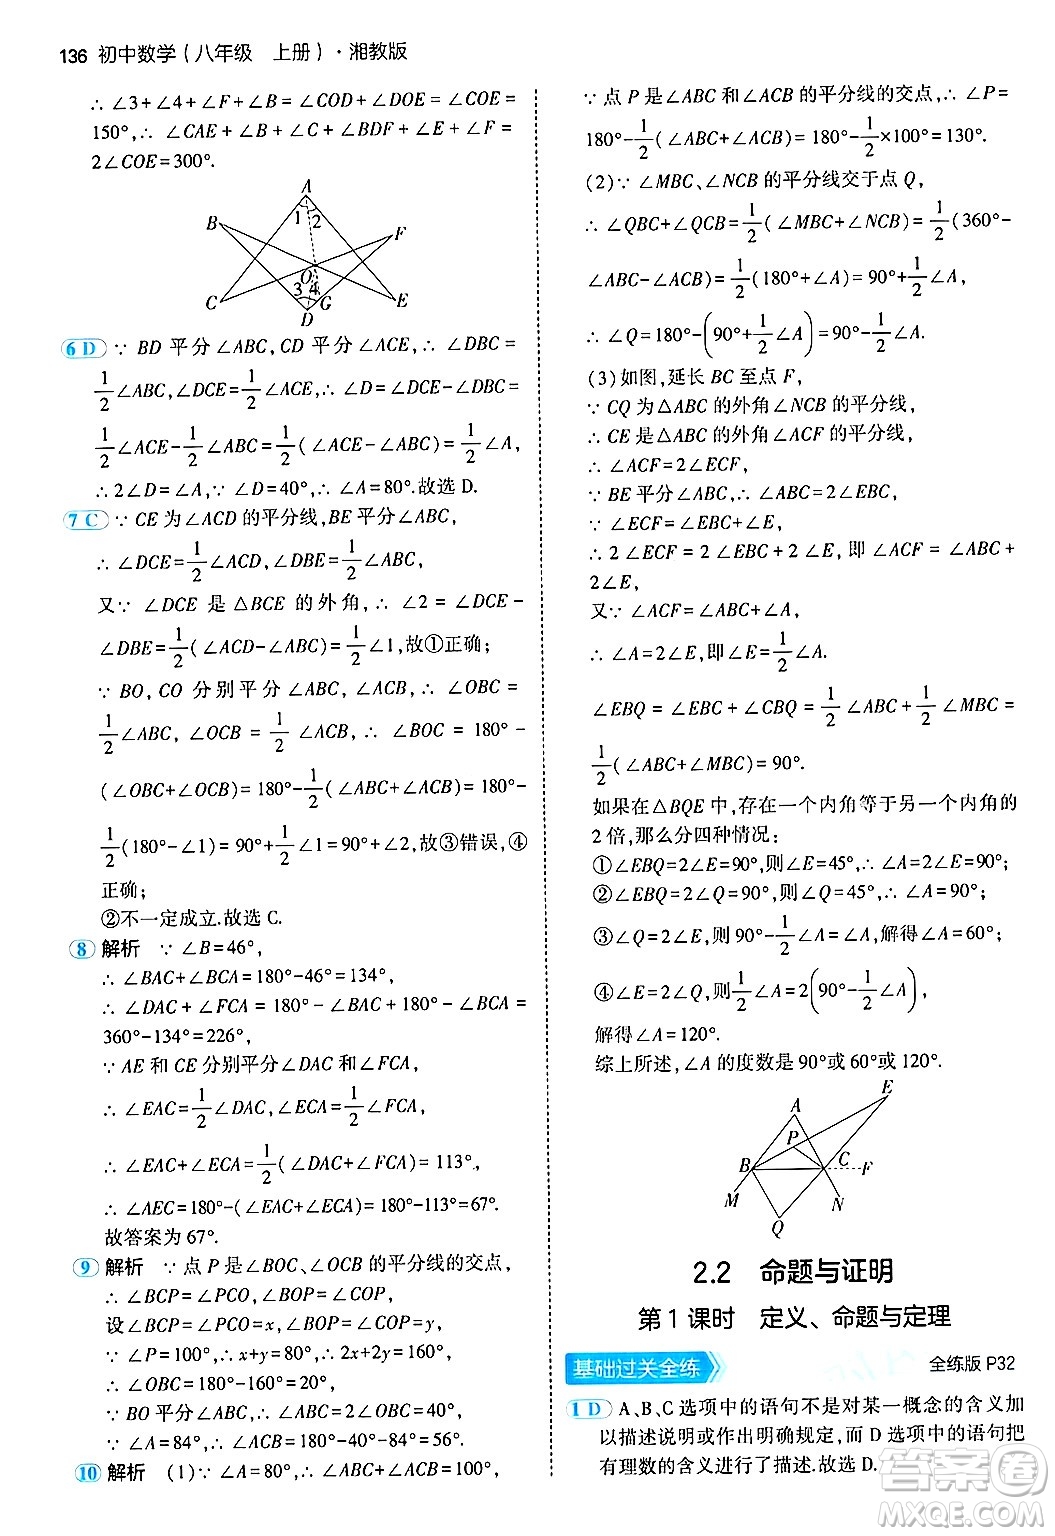 136 初中数学(八年级 上册)·湘教版
∴ ∠3+∠4+∠F+∠B=∠COD+∠DOE=∠COE=
150°,∴ ∠CAE+∠B+∠C+∠BDF+∠E+∠F=
2∠COE=300°.
A
B 1 2 F
O
C 3 4 G E
D
6 D ∵ BD 平分∠ABC,CD 平分∠ACE,∴ ∠DBC=
1/2∠ABC,∠DCE=1/2∠ACE,∴ ∠D=∠DCE-∠DBC=
1/2∠ACE-1/2∠ABC=1/2(∠ACE-∠ABC)=1/2∠A,
∴2∠D=∠A,∵∠D=40°,∴∠A=80°.故选 D.
7 C ∵ CE 为∠ACD的平分线,BE平分∠ABC,
∴ ∠DCE=1/2∠ACD,∠DBE=1/2∠ABC,
又∵ ∠DCE 是△BCE 的外角,∴ ∠2=∠DCE-
∠DBE=1/2(∠ACD-∠ABC)=1/2∠1,故①正确;
∵ BO,CO 分别平分∠ABC,∠ACB,∴ ∠OBC=
1/2∠ABC,∠OCB=1/2∠ACB,∴ ∠BOC=180°-
(∠OBC+∠OCB)=180°-1/2(∠ABC+∠ACB)=180°-
1/2(180°-∠1)=90°+1/2∠1,故③错误,④
正确;
②不一定成立.故选 C.
8 解析 ∵ ∠B=46°,
∴ ∠BAC+∠BCA=180°-46°=134°,
∴ ∠DAC+∠FCA=180°-∠BAC+180°-∠BCA=
360°-134°=226°,
∵ AE 和 CE 分别平分∠DAC 和∠FCA,
∴ ∠EAC=1/2∠DAC,∠ECA=1/2∠FCA,
∴ ∠EAC+∠ECA=1/2(∠DAC+∠FCA)=113°,
∴ ∠AEC=180°-(∠EAC+∠ECA)=180°-113°=67°.
故答案为 67°.
9 解析 ∵ 点 P 是∠BOC、∠OCB 的平分线的交点,
∴ ∠BCP=∠PCO,∠BOP=∠COP,
设∠BCP=∠PCO=x,∠BOP=∠COP=y,
∵ ∠P=110°,∴x+y=70°,∴2x+2y=140°,
∴ ∠OBC=180°-140°=40°,
∵ BO 平分∠ABC,∴ ∠ABC=80°,
∵ ∠A=84°,∴ ∠ACB=180°-80°-84°=16°.
10 解析 (1)∵ ∠ABC+∠ACB=100°,
∵ 点 P 是∠ABC 和∠ACB 的平分线的交点,∴∠P=
180°-1/2(∠ABC+∠ACB)=180°-1/2×100°=130°.
(2)∵ ∠MBC、∠NCB 的平分线交于点 Q,
∴ ∠QBC+∠QCB=1/2(∠MBC+∠NCB)=1/2(360°-
∠ABC-∠ACB)=1/2(180°+∠A)=90°+1/2∠A,
∴ ∠Q=180°-(90°+1/2∠A)=90°-1/2∠A.
(3)如图,延长 BC 至点 F,
∵ CQ 为△ABC 的外角∠NCB 的平分线,
∴ CE 是△ABC 的外角∠ACF 的平分线,
∴ ∠ACF=2∠ECF,
∵ BE 平分∠ABC,∴ ∠ABC=2∠EBC,
∵ ∠ECF=∠EBC+∠E,
∴ 2∠ECF=2∠EBC+2∠E,即∠ACF=∠ABC+
2∠E,
又∵ ∠ACF=∠ABC+∠A,
∴ ∠A=2∠E,即∠E=1/2∠A.
∠EBQ=∠EBC+∠CBQ=1/2∠ABC+1/2∠MBC=
1/2(∠ABC+∠MBC)=90°.
如果在△BQE 中,存在一个内角等于另一个内角的
2 倍,那么分四种情况:
①∠EBQ=2∠E=90°,则∠E=45°,∴∠A=2∠E=90°;
②∠EBQ=2∠Q=90°,则∠Q=45°,∴∠A=90°;
③∠Q=2∠E,则 90°-1/2∠A=∠A,解得∠A=60°;
④∠E=2∠Q,则1/2∠A=2(90°-1/2∠A),
解得∠A=120°.
综上所述,∠A 的度数是 90°或 60°或 120°.
A E
P
B C F
M N
Q
2.2 命题与证明
第 1 课时 定义、命题与定理
基础过关全练 全练版 P32
1 D A、B、C 选项中的语句不是对某一概念的含义加
以描述说明或作出明确规定,而 D 选项中的语句把
有理数的含义进行了描述.故选 D.
答案圈
MXQE.COM